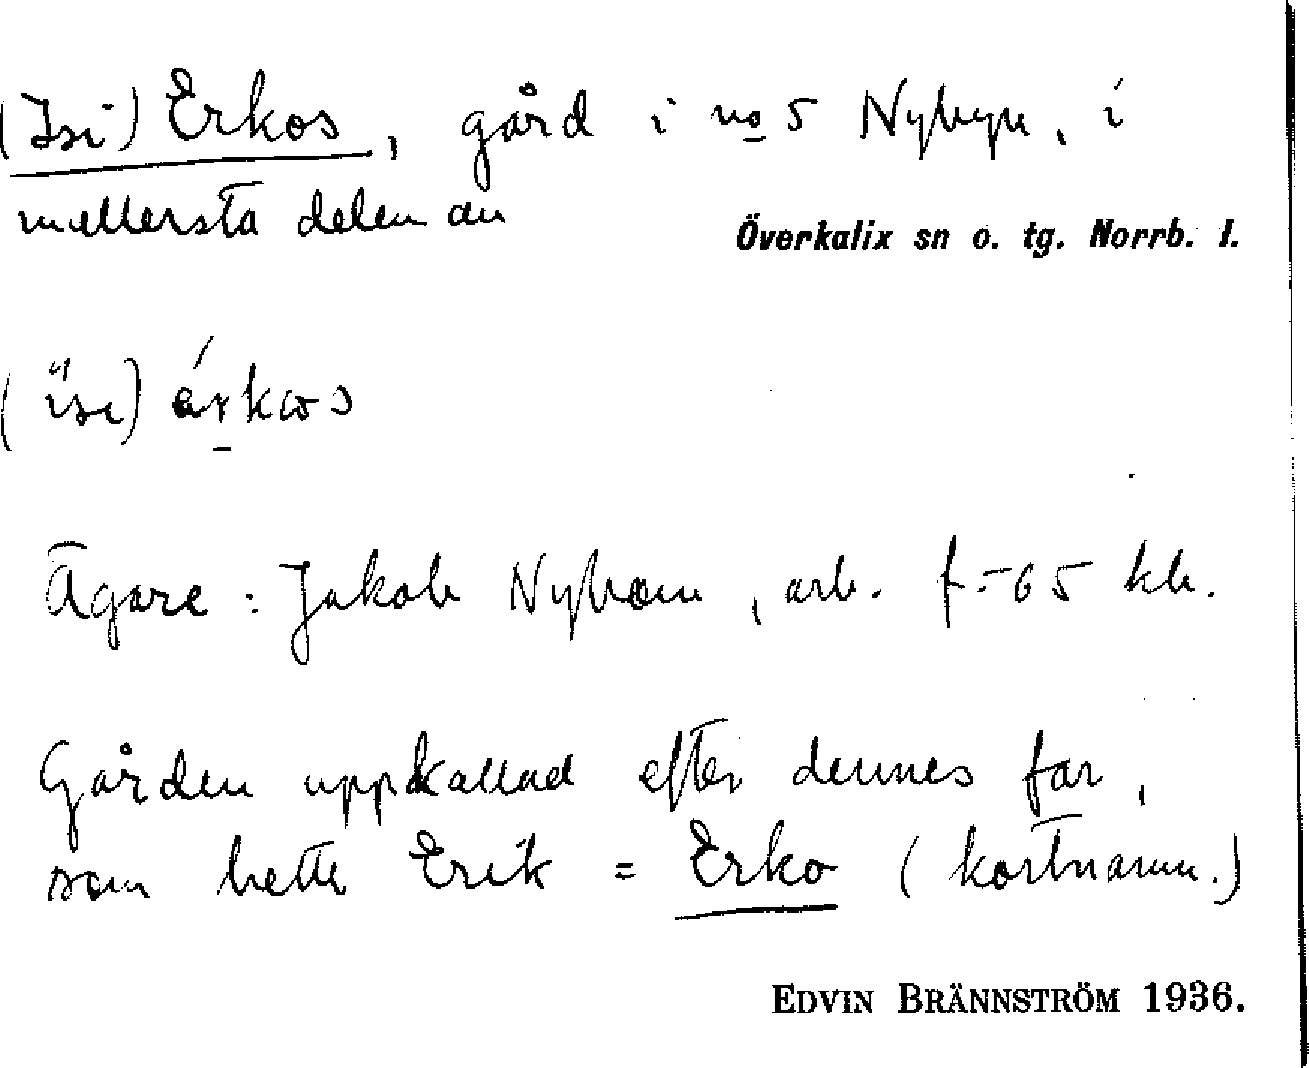 (Isi) Erkos, gård i no 5 Nybyn, i
mellersta delen av
Överkalix sn o. tg. Norrb. l.
(isi) ärkos
Ägare: Jakob Nyström, arb. f.-65 kb.
Gården uppkallad efter dennes far,
som hette Erik = Erko (kortnamn.)
EDVIN BRÄNNSTRÖM 1936.